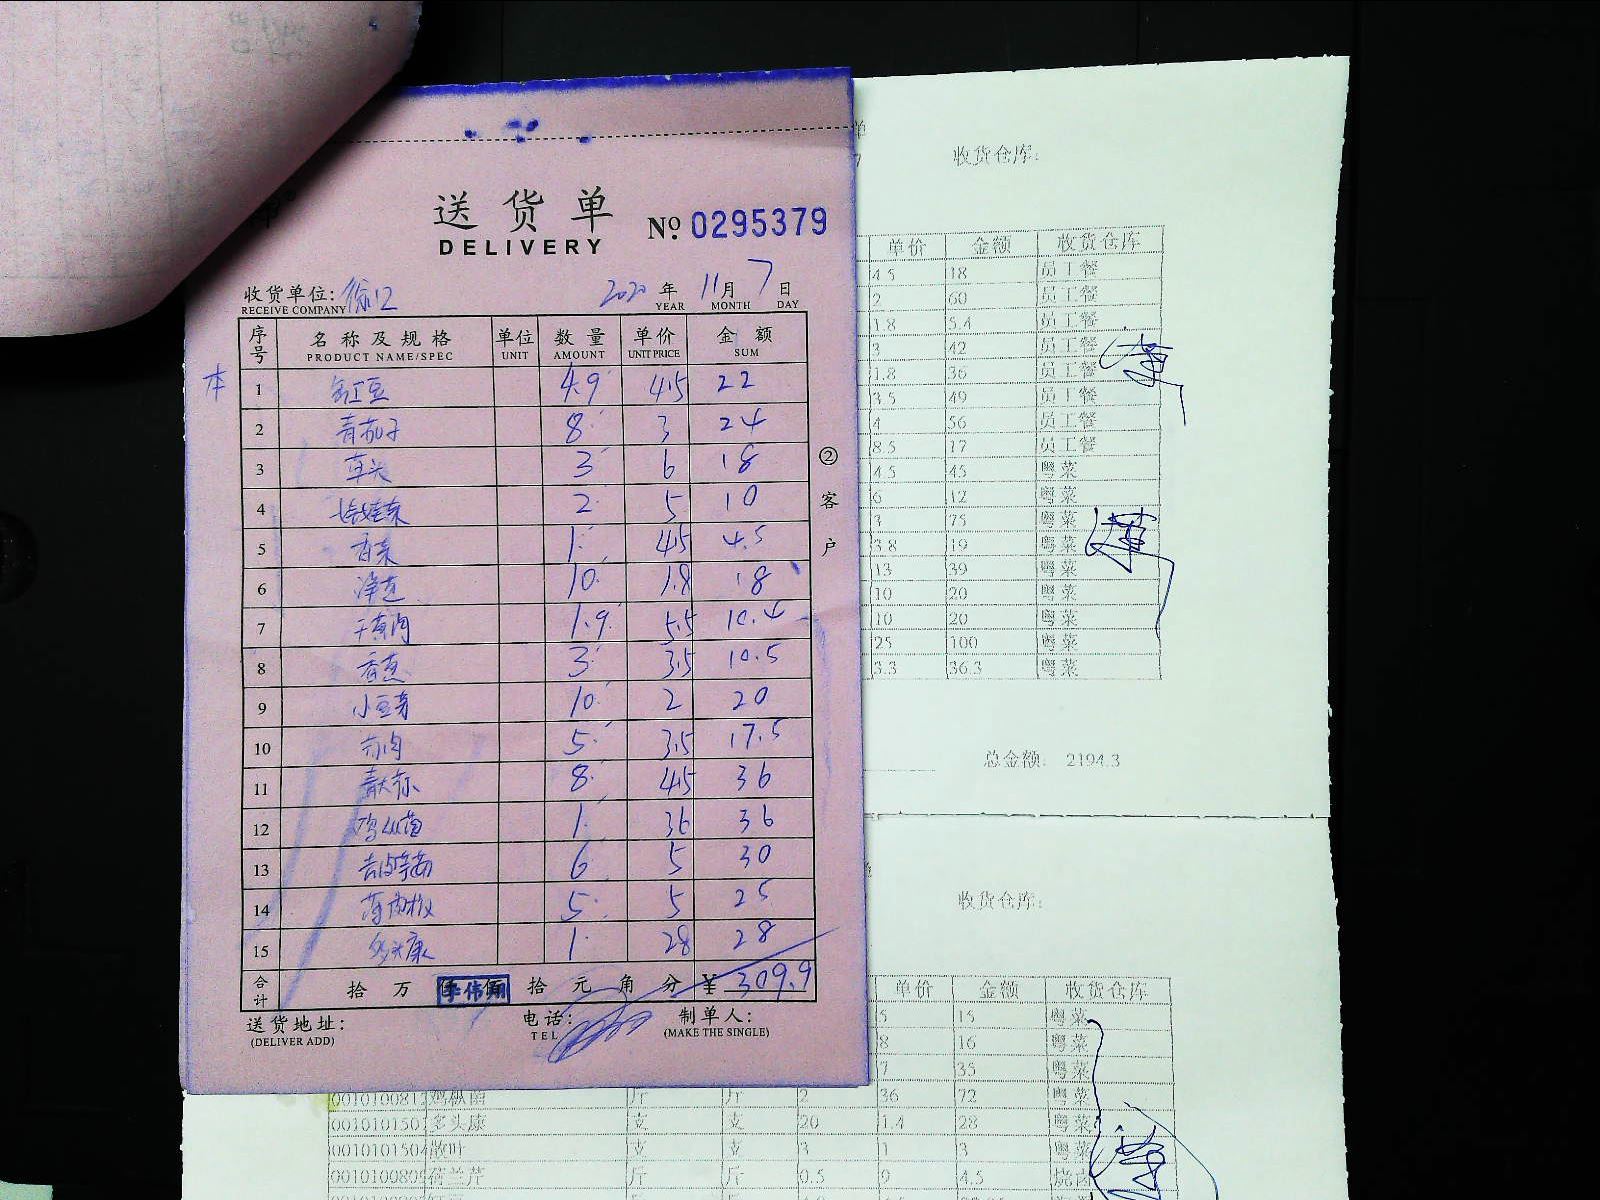 送货单
DELIVERY
№ 0295379
收货单位:
RECEIVE COMPANY
2020 年 11 月 7 日
YEAR MONTH DAY
序号 名称及规格 单位 数量 单价 金额
PRODUCT NAME/SPEC UNIT AMOUNT UNIT PRICE SUM
本
1 豇豆 4.9 4.5 22
2 青茄子 8 3 24
3 3 6 18
4 娃娃菜 2 5 10
5 香菜 1 4.5 4.5
6 净葱 10 1.8 18
7 1.9 5.5 10.4
8 香葱 3 3.5 10.5
9 小豆芽 10 2 20
10 5 3.5 17.5
11 8 4.5 36
12 1 36 36
13 6 5 30
14 5 5 25
15 多头康 1 28 28
合计 拾 万 仟 佰 拾 元 角 分 ¥ 309.9
李伟翔
②客户
送货地址:
(DELIVER ADD)
电话:
TEL
制单人:
(MAKE THE SINGLE)
单
收货仓库:
单价 金额 收货仓库
4.5 18 员工餐
2 60 员工餐
1.8 5.4 员工餐
3 42 员工餐
1.8 36 员工餐
3.5 49 员工餐
4 56 员工餐
8.5 17 员工餐
4.5 45 粤菜
6 12 粤菜
3 75 粤菜
3.8 19 粤菜
13 39 粤菜
10 20 粤菜
10 20 粤菜
25 100 粤菜
3.3 36.3 粤菜
总金额: 2194.3
收货仓库:
单价 金额 收货仓库
5 15 粤菜
8 16 粤菜
7 35 粤菜
001010081 鸡枞菌 斤 斤 2 36 72 粤菜
001010150 多头康 支 支 20 1.4 28 粤菜
001010150 散叶 支 支 3 1 3 粤菜
001010080 荷兰芹 斤 斤 0.5 9 4.5